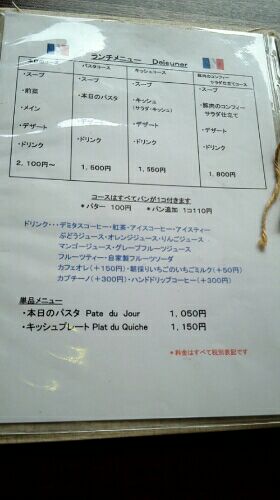 ランチメニュー Dejeuner
パスタコース
キッシュコース
豚肉のコンフィー
サラダ仕立てコース
・スープ
・前菜
・メイン
・デザート
・ドリンク
2,100円～
・スープ
・本日のパスタ
・デザート
・ドリンク
1,500円
・スープ
・キッシュ
(サラダ・キッシュ)
・デザート
・ドリンク
1,550円
・スープ
・豚肉のコンフィー
サラダ仕立て
・デザート
・ドリンク
1,800円
コースはすべてパンが1コ付きます
＊バター 100円 ＊パン追加 1コ110円
ドリンク・・・デミタスコーヒー・紅茶・アイスコーヒー・アイスティー
ぶどうジュース・オレンジジュース・りんごジュース
マンゴージュース・グレープフルーツジュース
フルーツティー・自家製フルーツソーダ
カフェオレ(＋150円)・朝採りいちごのいちごミルク(＋50円)
カプチーノ(＋300円)・ハンドドリップコーヒー(＋300円)
単品メニュー
・本日のパスタ Pate du Jour 1,050円
・キッシュプレート Plat du Quiche 1,150円
＊料金はすべて税別表記です